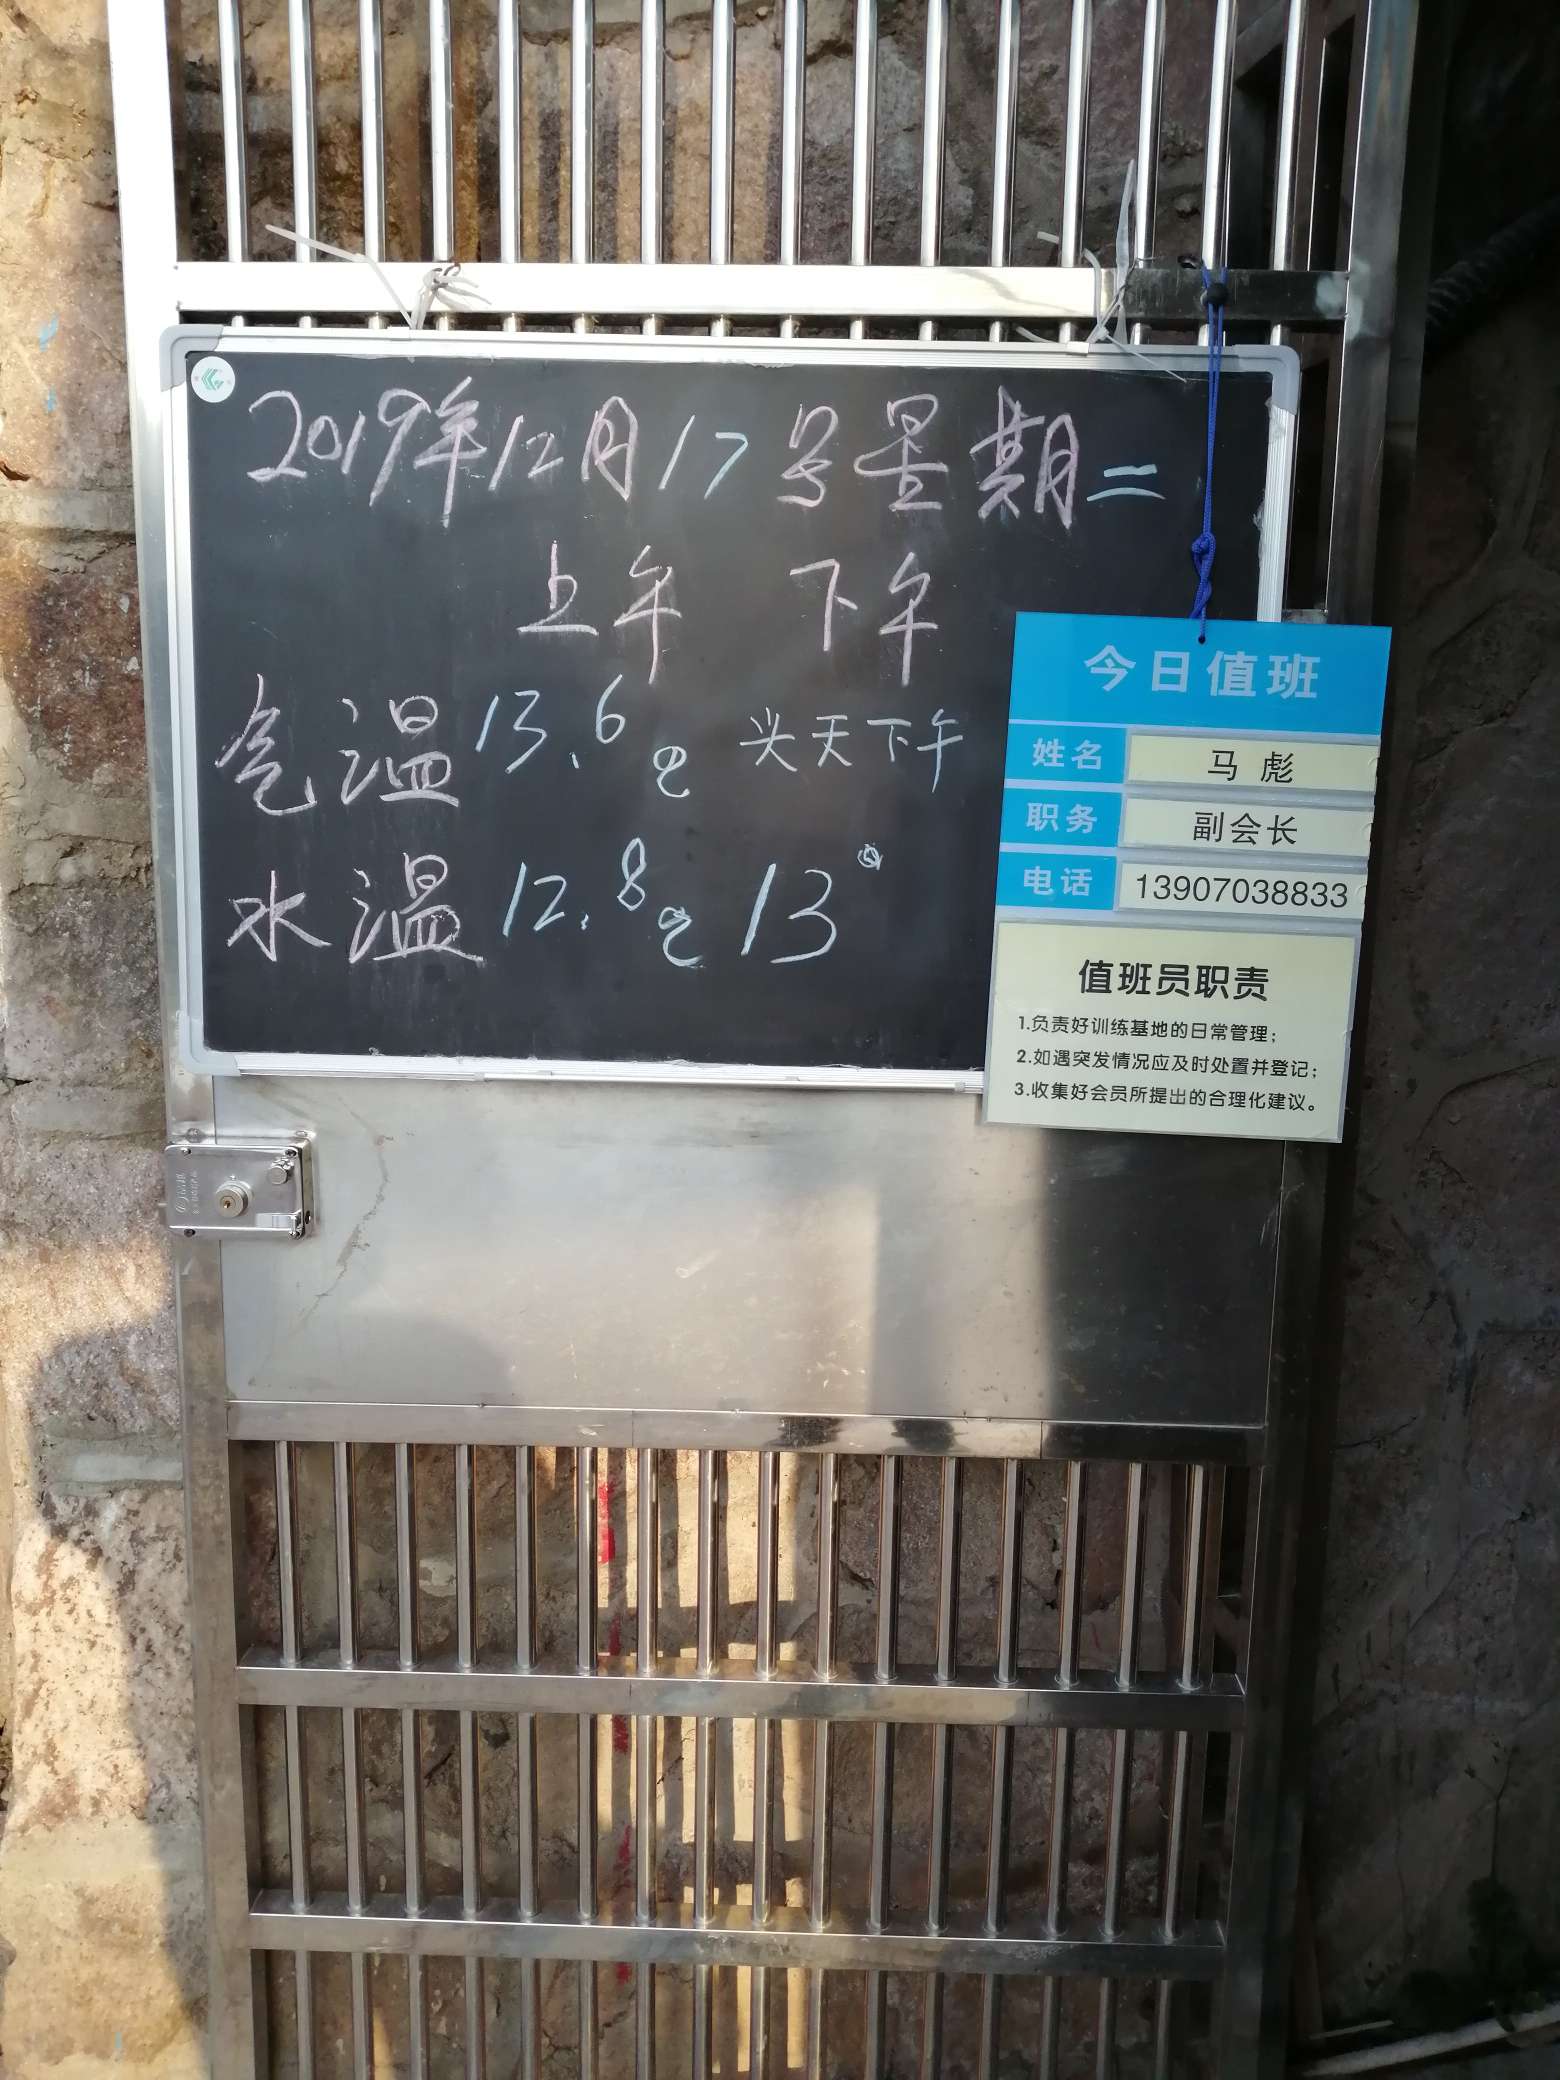 2019年12月17号星期二
上午 下午
气温 13.6℃ 头天下午
水温 12.8℃ 13°
今日值班
姓名 马彪
职务 副会长
电话 13907038833
值班员职责
1.负责好训练基地的日常管理;
2.如遇突发情况应及时处置并登记;
3.收集好会员所提出的合理化建议。